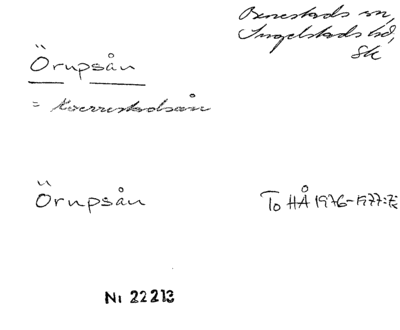 Benestads sn,
Ingelstads hd,
Sk
Örupsån
= Kverrestadsån
Örupsån
To HÅ 1976-1977:7;
Nr 22213